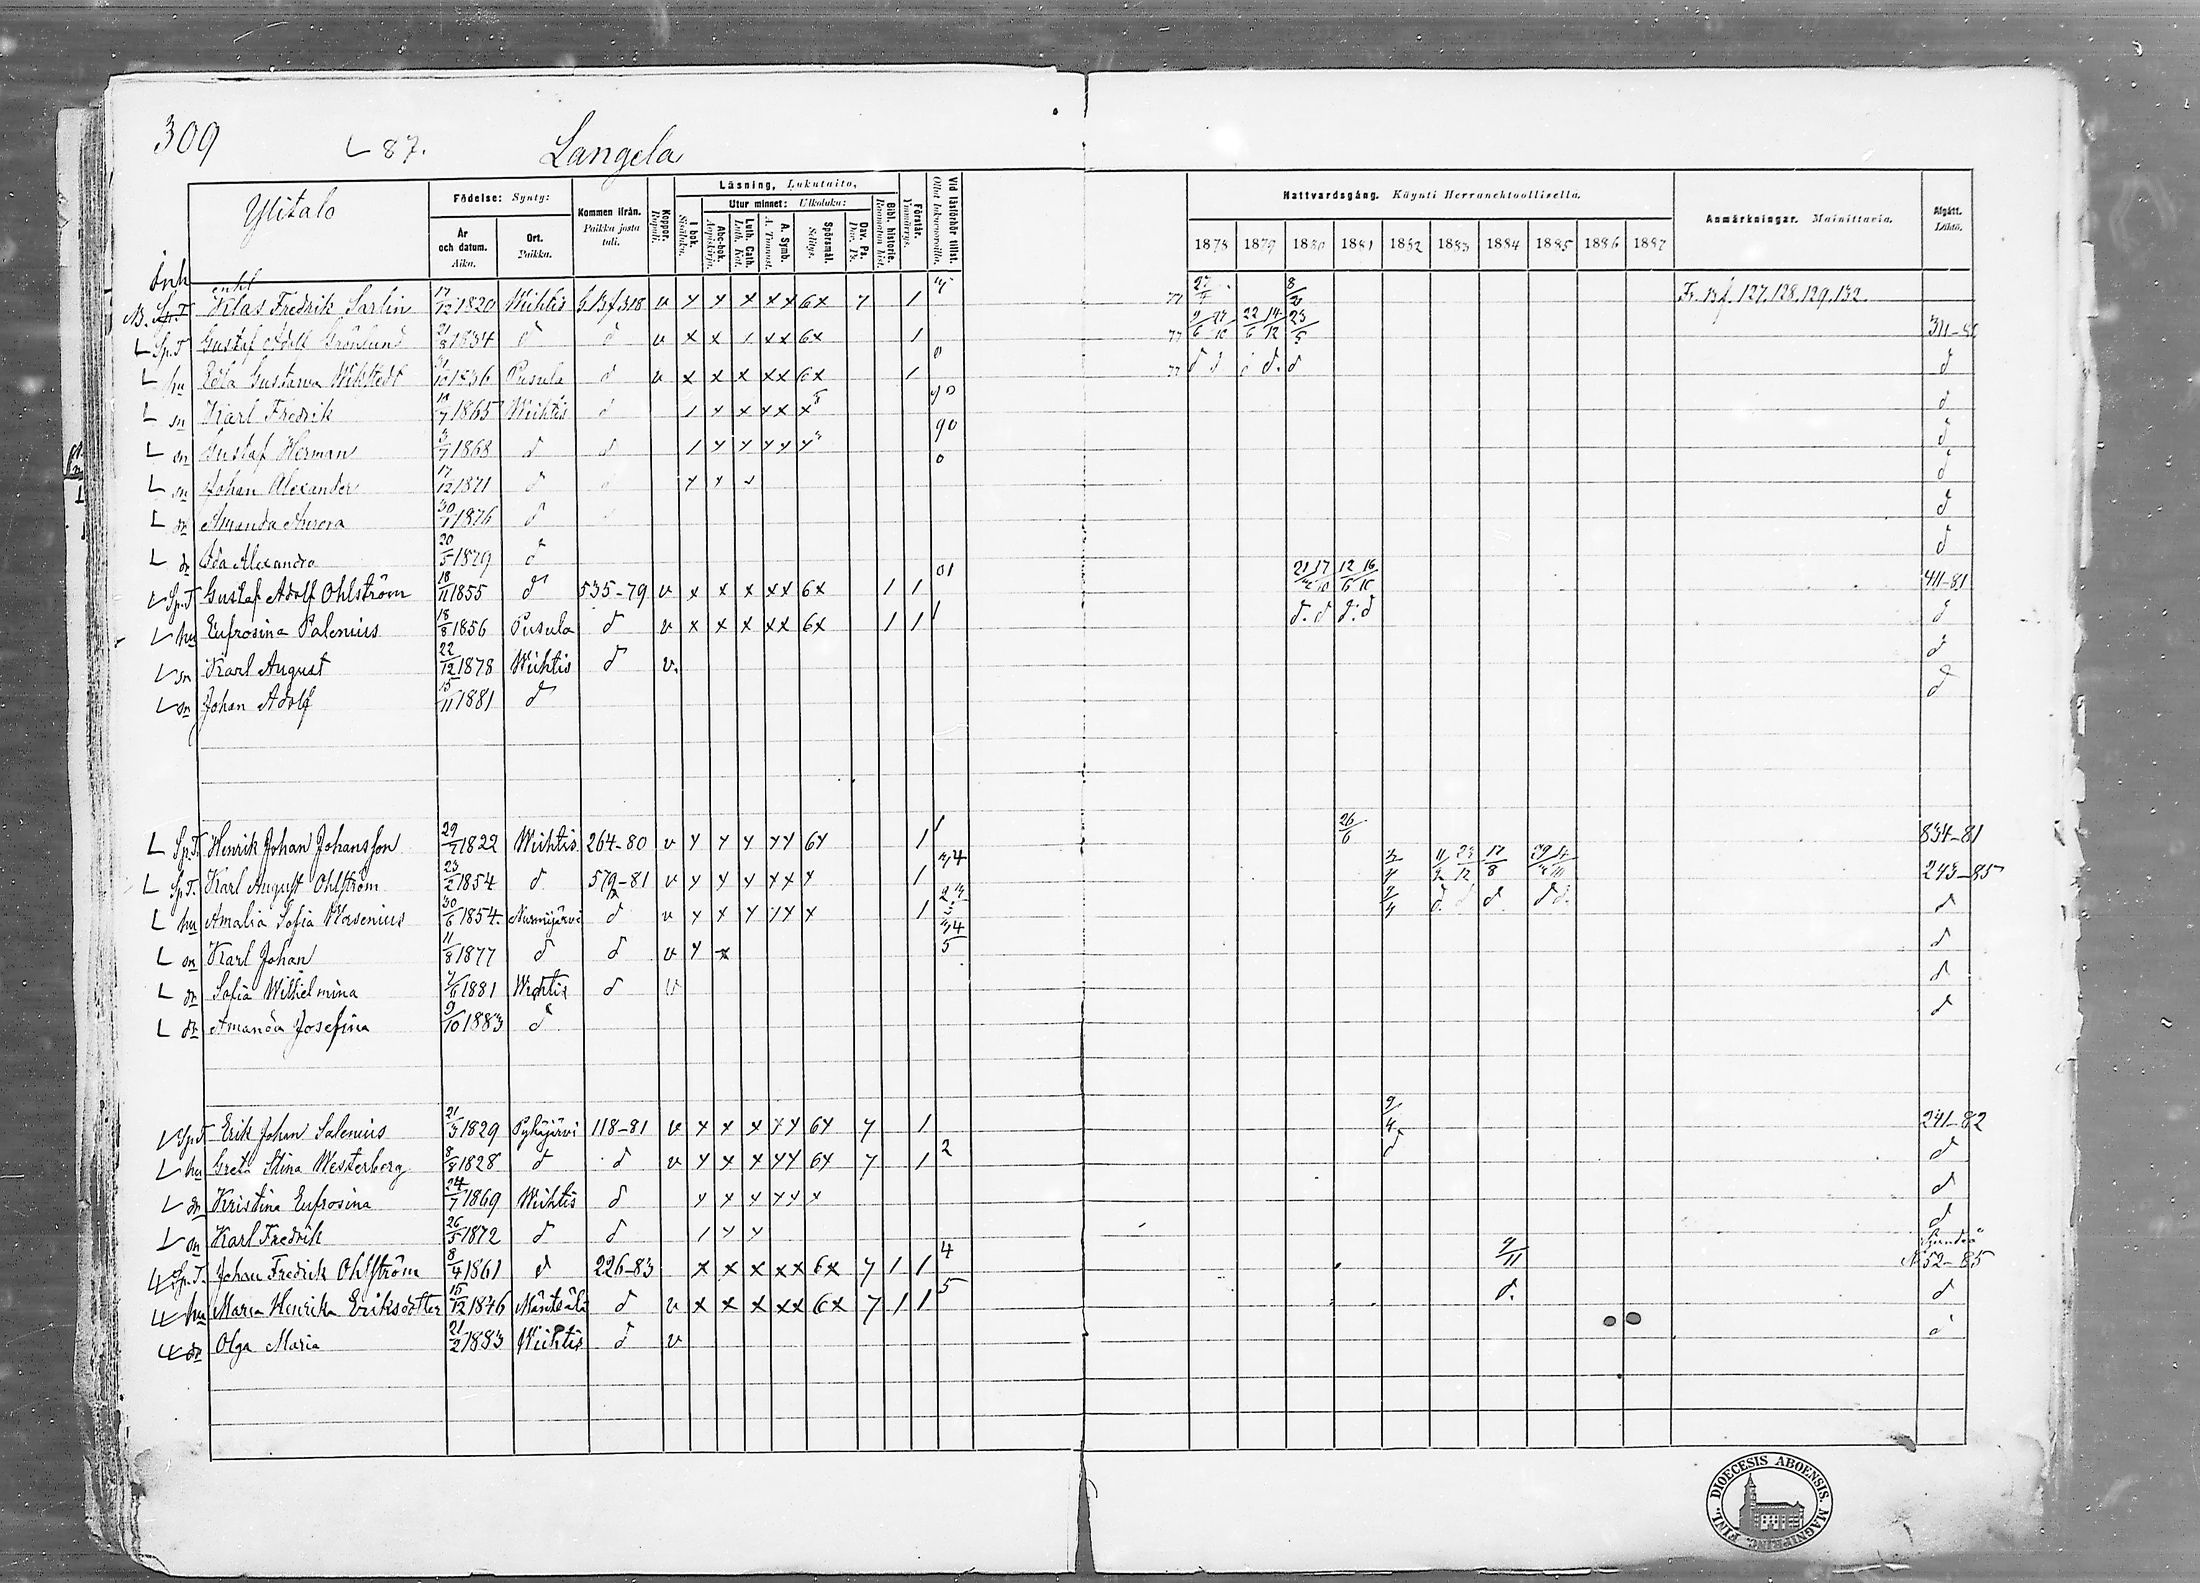 309 L 87. Langela
Ylitalo
Födelse: Synty:
År och datum. Aika.
Ort. Paikka.
Kommen ifrån. Paikka josta tuli.
Koppor. Rupuli.
Läsning, Lukutaito,
I bok. Sisäluku.
Utur minnet: Ulkoluku:
Abc-bok. Aapiskirja.
Luth. Cath. Luth. Kat.
A. Symb. A. Tunnust.
Spörsmål. Selitys.
Dav. Ps. Dav. Ps.
Bibl. historie. Raamatun hist.
Förstår. Ymmärrys.
Vid läsförhör tillst. Ollut lukuvuoroilla.
Nattvardsgång. Käynti Herranehtoollisella.
1878 1879 1880 1881 1882 1883 1884 1885 1886 1887
Anmärkningar. Muistettavia.
Afgått. Lähtö.
Inh enkl
Klas Fredrik Sarlin 17/12 1820 Wichtis v x x x x x 6x 7 1 77 27 8 Fr. 127, 128, 129, 132
L Sp.T Gustaf Adolf Grönlund 21 1834 d d v x x 1 x x 6x 1 77 22/6 14/12 311-80
L hu Edla Gustava Wikstedt 1836 Pusula d v x x x x x 6x 1 77 d d d. d d
L sn Karl Fredrik 1865 Wichtis d 1 x x x x x d
L sn Gustaf Herman 3/7 1868 d d 1 x x x x x d
L sn Johan Alexander 17/12 1871 d x x d
L dr Amanda Aurora 30/1 1876 d d
L dr Ida Alexandra 20/5 1879 d d
L Sp.T Gustaf Adolf Ohlström 18/11 1855 d 535-79 v x x x x x 6x 1 1 01 12/6 16/10 411-81
L hu Eufrosina Palenius 18/8 1856 Pusula d v x x x x x 6x 1 1 1 d. d d. d d
L sn Karl August 22/12 1878 Wichtis d v. d
L sn Johan Adolf 15/11 1881 d d
L Sp.T. Henrik Johan Johansson 1822 Wichtis 264-80 v x x x x x 6x 1 1 26/6 834-81
L Sp.T. Karl August Ohlström 23/2 1854 d 579-81 v x x x x x x 1 34 17/8 243-85
L hu Amalia Sofia 30/6 1854. Nurmijärvi d v x x x x x x 1 d. d d d d. d
L sn Karl Johan 11/8 1877 d d v x x 5 d
L dr Sofia Wilhelmina 1881 Wichtis d v d
L dr Amanda Josefina 9/10 1883 d d
L Sp.T Erik Johan Salenius 21/3 1829 Pyhäjärvi 118-81 v x x x x x 6x 7 1 2/4 241-82
L hu Greta Stina Westerberg 8/8 1828 d d v x x x x x 6x 7 1 2 d d
L dr Kristina Eufrosina 24/7 1869 Wichtis d x x x x x x d
L sn Karl Fredrik 26/5 1872 d d 1 x x d
Sp.T. Johan Fredrik Ohlström 8/4 1861 d 226-83 x x x x x 6x 7 1 1 4 2/11 Sjundeå N 52-85
hu Maria Henrika Eriksdotter 15/12 1846 Mäntsälä d v x x x x x 6x 7 1 1 5 d. d
dr Olga Maria 21/2 1883 Wichtis d v d
FINL. DIOECESIS ABOENSIS. MAGNI PRINC.